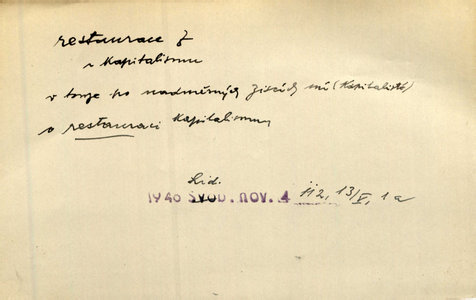 restaurace f
~ kapitalismu
v touze po nadměrných ziscích usil (kapitalisté)
o restauraci kapitalismu
Lid.
1946 SVOB. NOV. 4 112, 13/V, 1a